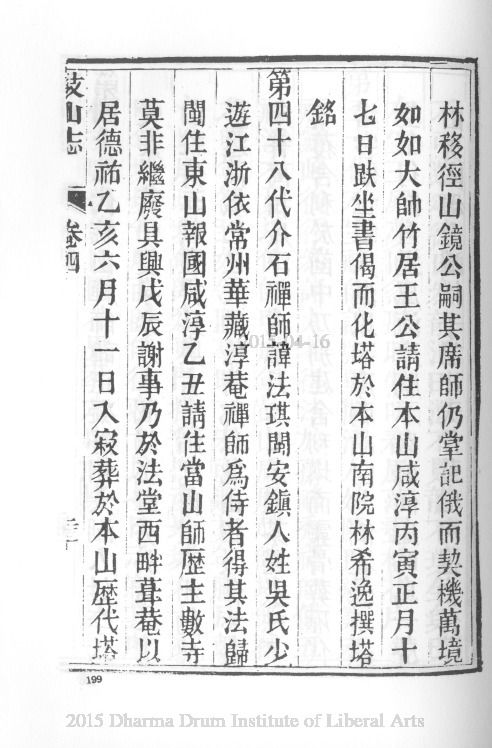 林移徑山鏡公嗣其席師仍掌記俄而契機萬境
如如大帥竹居王公請住本山咸淳丙寅正月十
七日趺坐書偈而化塔於本山南院林希逸撰塔
銘
第四十八代介石禪師諱法琪閩安鎮人姓吳氏少
遊江浙依常州華藏淳菴禪師爲侍者得其法歸
閩住東山報國咸淳乙丑請住當山師歷主數寺
莫非繼廢具興戊辰謝事乃於法堂西畔葺菴以
居德祐乙亥六月十一日入寂葬於本山歷代塔
鼓山志 卷四
199
2015-04-16
2015 Dharma Drum Institute of Liberal Arts